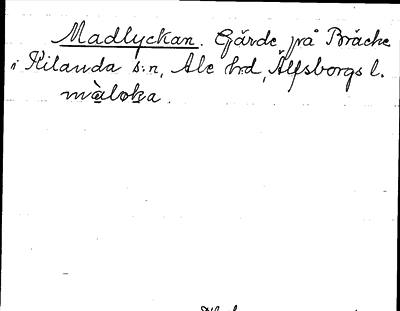 Madlyckan. Gärde på Bräcke
i Kilanda s:n, Ale hd, Älfsborgs l.
màloka.